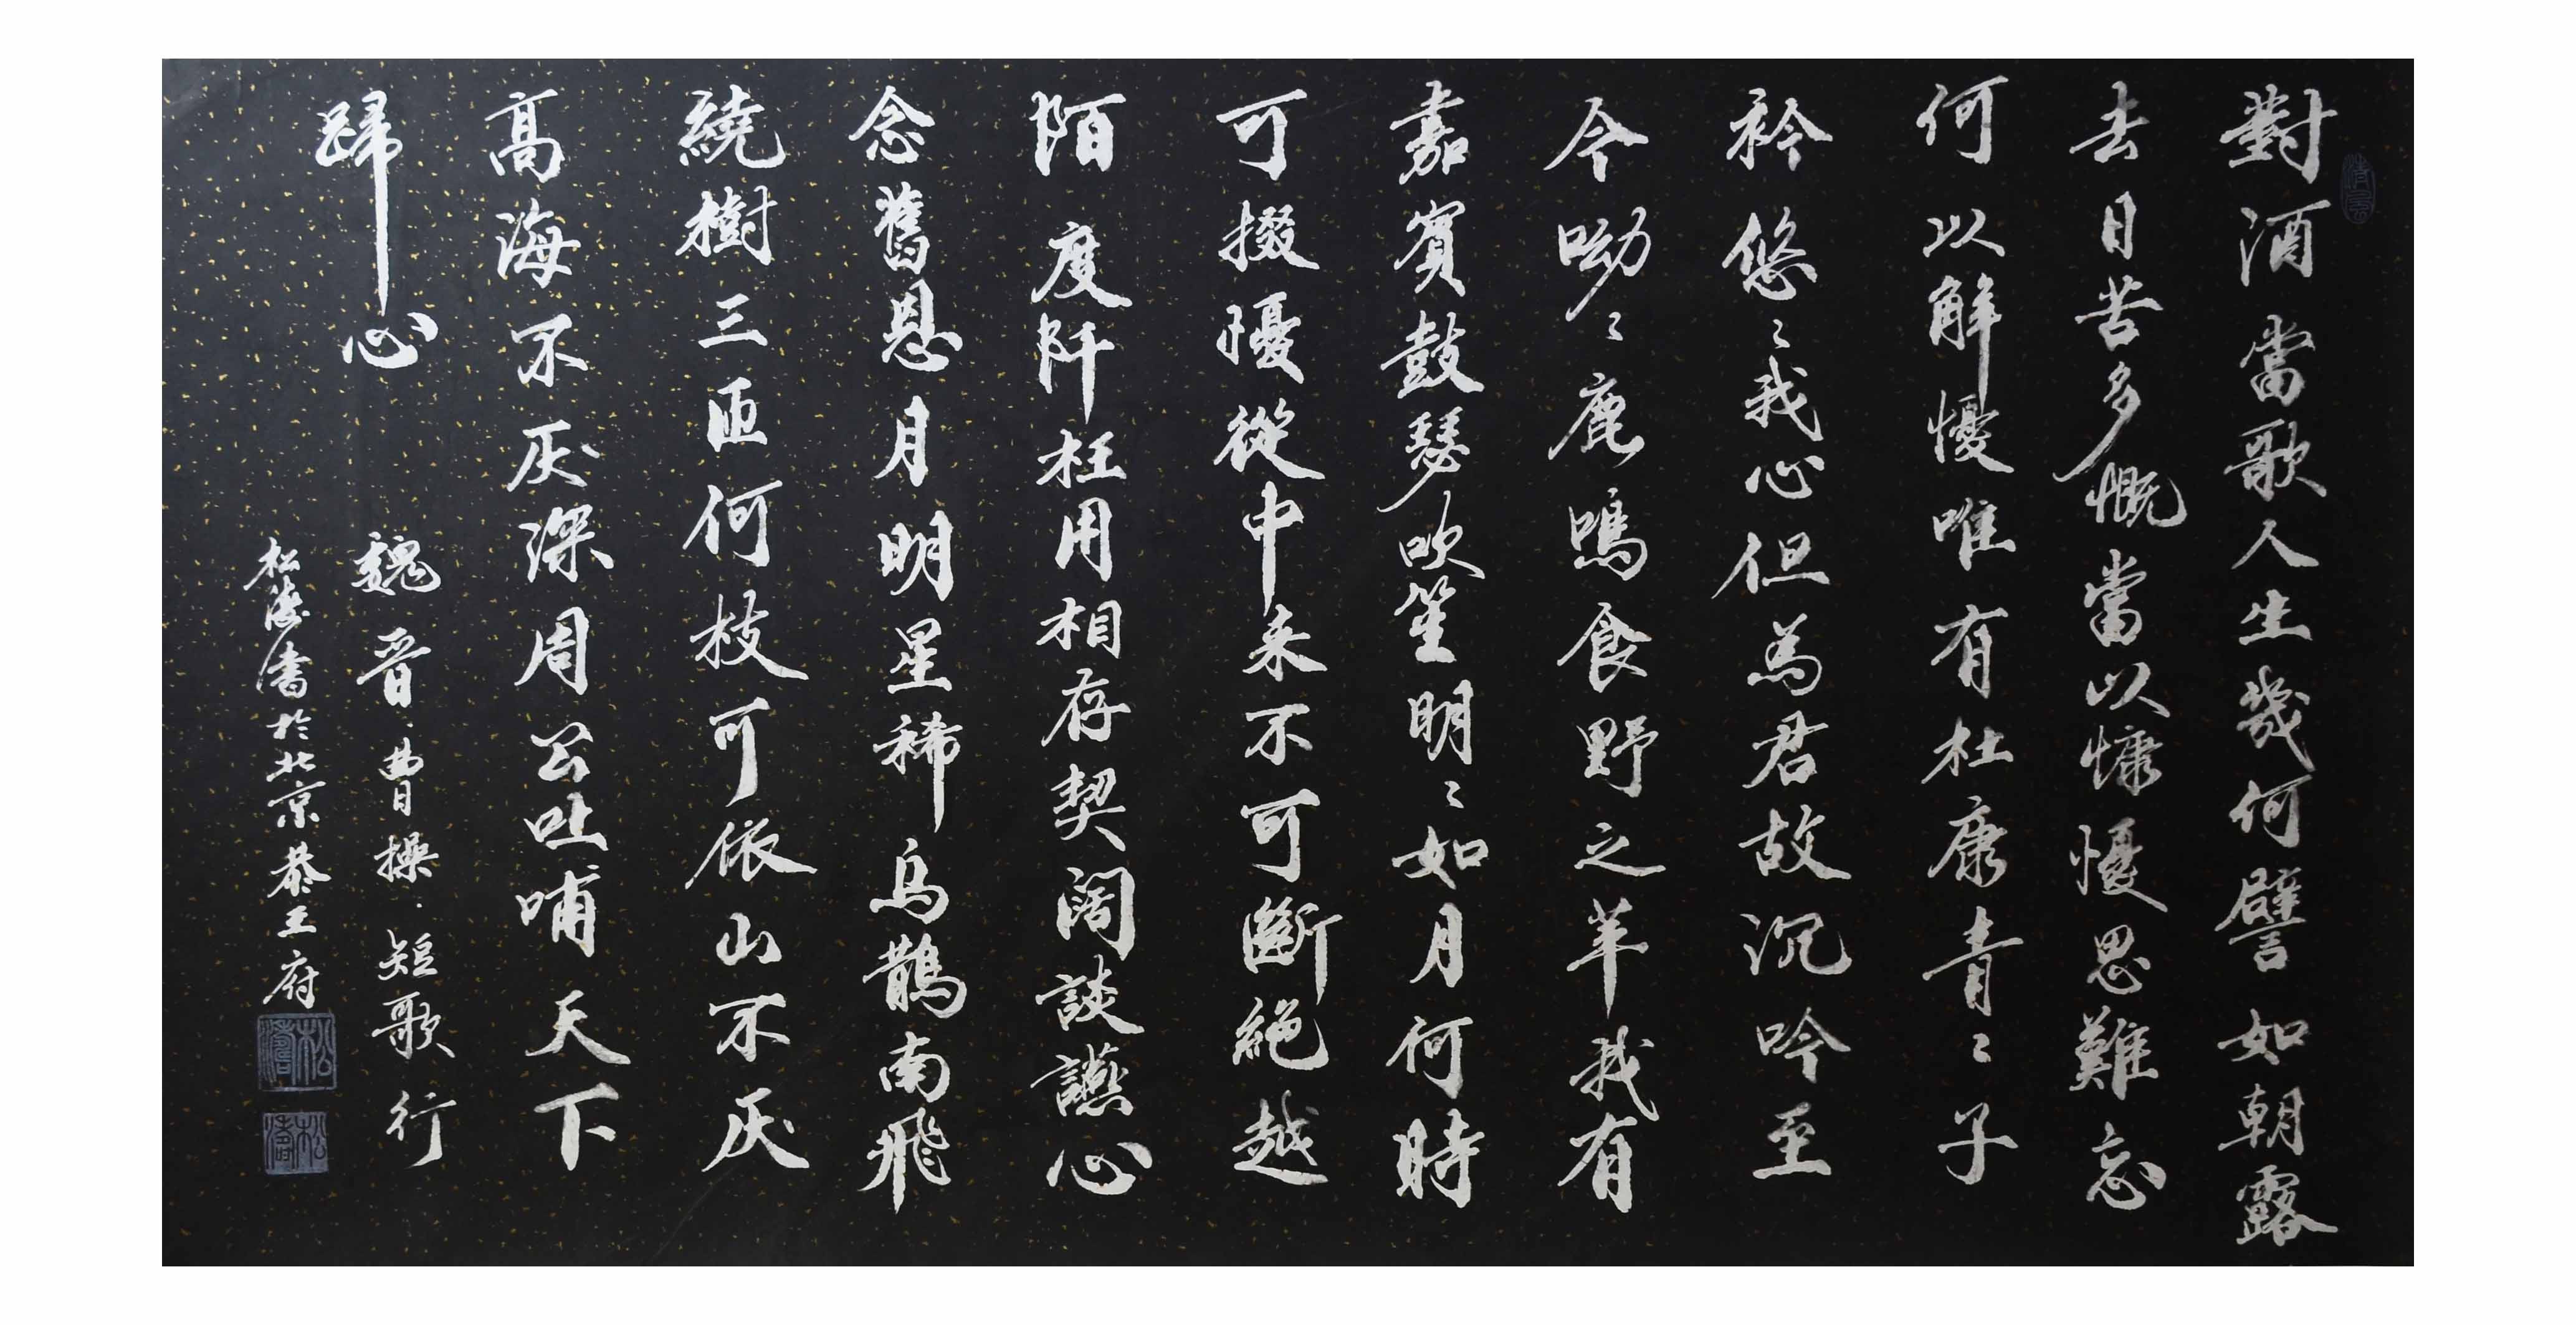 對酒當歌人生幾何譬如朝露
去日苦多慨當以慷憂思難忘
何以解憂唯有杜康青〻子
衿悠〻我心但為君故沉吟至
今呦〻鹿鳴食野之苹我有
嘉賓鼓瑟吹笙明〻如月何時
可掇憂從中来不可斷絕越
陌度阡枉用相存契闊談讌心
念舊恩月明星稀烏鵲南飛
繞樹三匝何枝可依山不厌
高海不厌深周公吐哺天下
歸心
魏晋·曹操·短歌行
松濤書於北京恭王府
松濤
松濤